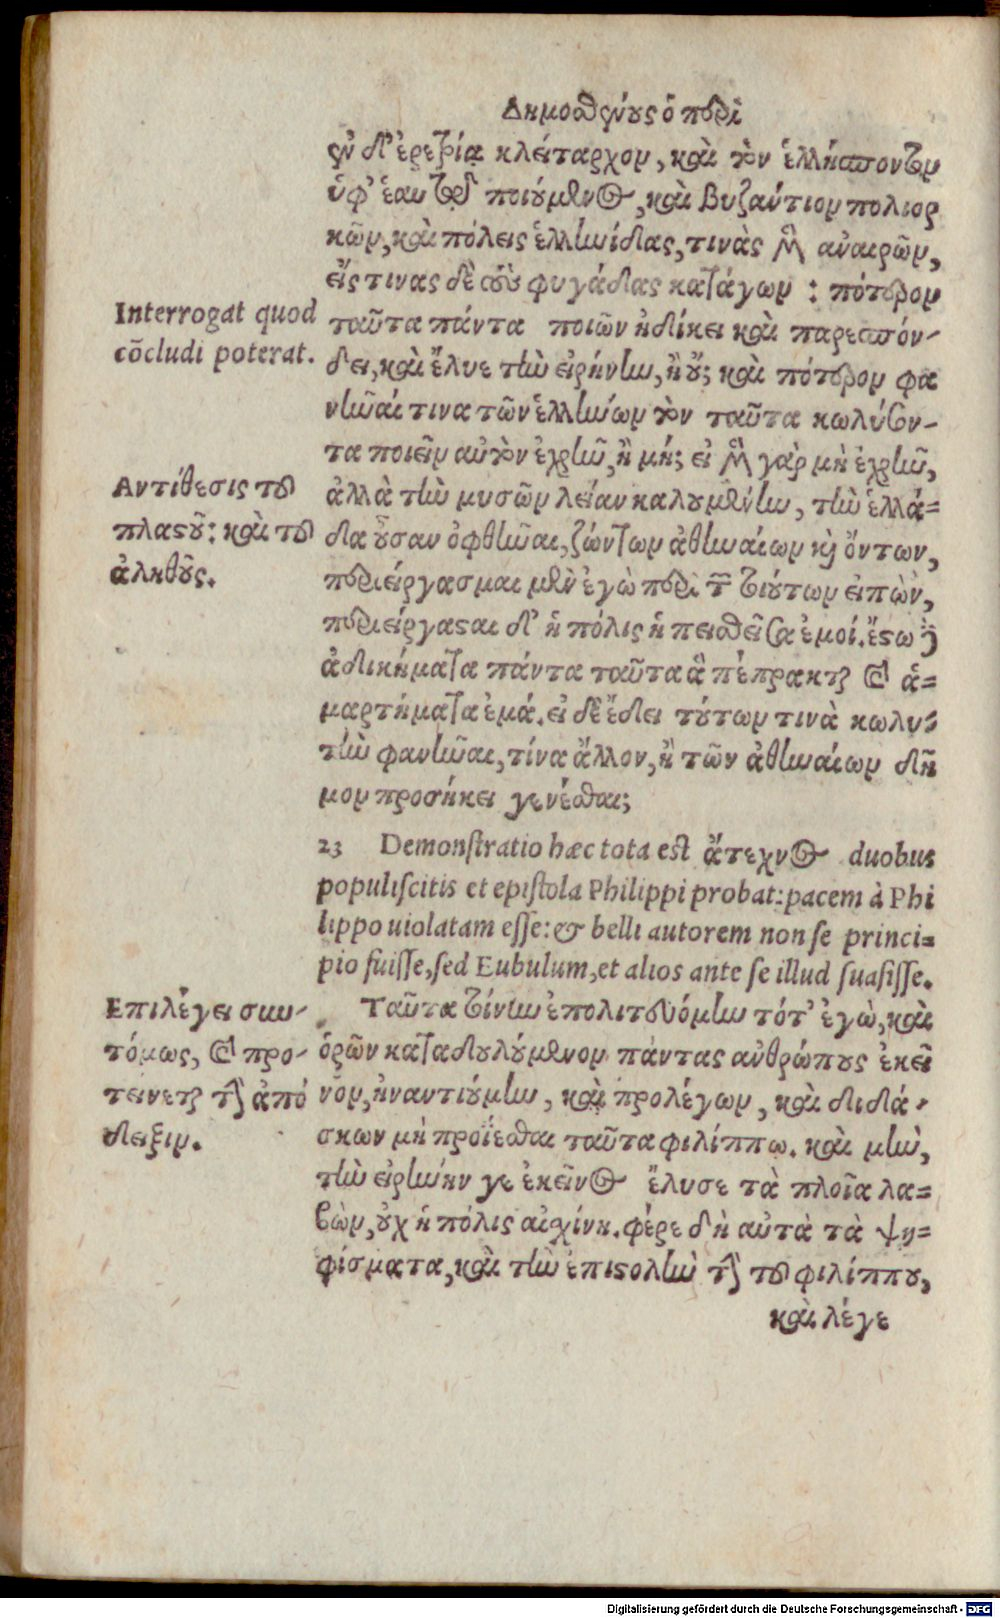 Δημοσθένους ὁ περὶ
ἐν δ’ ἐρετρίᾳ κλείταρχον, καὶ τὸν ἑλλήσποντον
ὑφ’ ἑαυτῷ ποιούμενος, καὶ Βυζάντιον πολιορ
κῶν, καὶ πόλεις ἑλληνίδας, τινὰς μὲν ἀναιρῶν,
εἴς τινας δὲ τοὺς φυγάδας κατάγων : πότερον
Interrogat quod
cõcludi poterat.
ταῦτα πάντα ποιῶν ἠδίκει καὶ παρεσπόν-
δει, καὶ ἔλυε τὴν εἰρήνην, ἢ οὔ; καὶ πότερον φα
νῆναί τινα τῶν ἑλλήνων τὸν ταῦτα κωλύσον-
τα ποιεῖν αὐτὸν ἐχρῆν, ἢ μή; εἰ μὲν γὰρ μὴ ἐχρῆν,
Αντίθεσις τοῦ
πλαστοῦ: καὶ τοῦ
ἀληθοῦς.
ἀλλὰ τὴν μυσῶν λείαν καλουμένην, τὴν ἑλλά=
δα οὖσαν ὀφθῆναι, ζώντων ἀθηναίων καὶ ὄντων,
περιείργασμαι μὲν ἐγὼ περὶ τῶν τούτων εἰπὼν,
περιείργασται δ’ ἡ πόλις ἡ πεισθεῖσα ἐμοί. ἔστω δὲ
ἀδικήματα πάντα ταῦτα ἃ πέπρακται καὶ ἁ=
μαρτήματα ἐμά. εἰ δὲ ἔδει τούτων τινὰ κωλυ=
τὴν φανῆναι, τίνα ἄλλον, ἢ τῶν ἀθηναίων δῆ
μον προσήκει γενέσθαι;
23 Demonſtratio hæc tota est ἄτεχνος duobus
populiſcitis et epiſtola Philippi probat: pacem à Phi
lippo uiolatam eſſe: & belli autorem non ſe princi=
pio fuiſſe, ſed Eubulum, et alios ante ſe illud ſuaſiſſe.
Επιλέγει συν-
τόμως, καὶ προ-
τείνεται τὴν ἀπό
δειξιν.
Ταῦτα τοίνυν ἐπολιτευόμην τότ’ ἐγὼ, καὶ
ὁρῶν καταδουλούμενον πάντας ἀνθρώπους ἐκεῖ
νον, ἠναντιούμην, καὶ προλέγων, καὶ διδά-
σκων μὴ προΐεσθαι ταῦτα φιλίππῳ. καὶ μὴν,
τὴν εἰρήνην γε ἐκεῖνος ἔλυσε τὰ πλοῖα λα=
βὼν, οὐχ ἡ πόλις αἰσχίνη. φέρε δὴ αὐτὰ τὰ ψη=
φίσματα, καὶ τὴν ἐπιστολὴν τὴν τοῦ φιλίππου,
καὶ λέγε
Digitalisierung gefördert durch die Deutsche Forschungsgemeinschaft - DFG